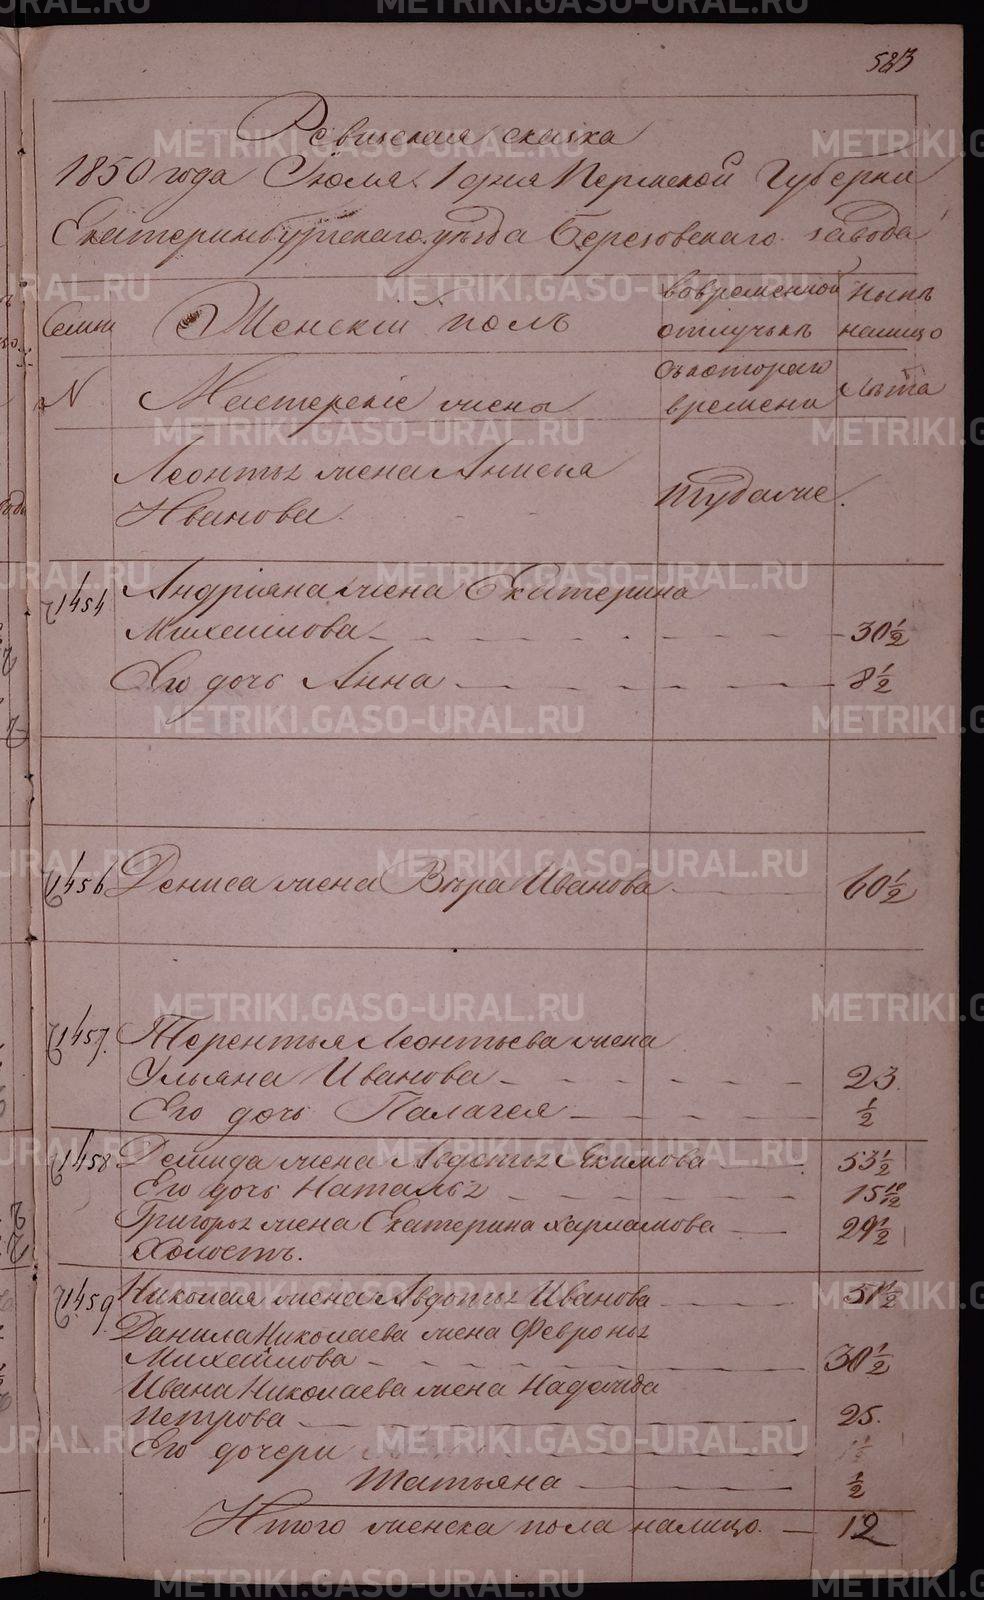 523
Ревизская сказка
1850 года Июля 1 дня Пермской Губерни
Екатеринбургскаго уезда Березовскаго завода
Семьи Женскій полъ вовременной Ныне
отлучьке налицо
N Мастерскіе жены Съкотораго Лета
времени
Леонтья жена Анисья
Иванова тудаже.
1454 Андріяна жена Екатерина
Михаилова 30 1/2
Его дочь Анна 8 1/2
1456 Дениса жена Вера Иванова 60 1/2
1457. Терентья Леонтьева жена
Ульяна Иванова 23.
Его дочь Палагея 1/2
1458 Демида жена Авдотья Якимова 53 1/2
Его дочь Наталья 15 10/12
Григорья жена Екатерина Харламова 29 1/2
Холостъ.
1459. Николая жена Авдотья Иванова 51 1/2
Данила Николаева жена Февронья
Михайлова 30 1/2
Ивана Николаева жена Надежда
Петрова 25.
Его дочери 1 1/2
Татьяна 1/2
Итого женска пола налицо. 12
METRIKI.GASO-URAL.RU